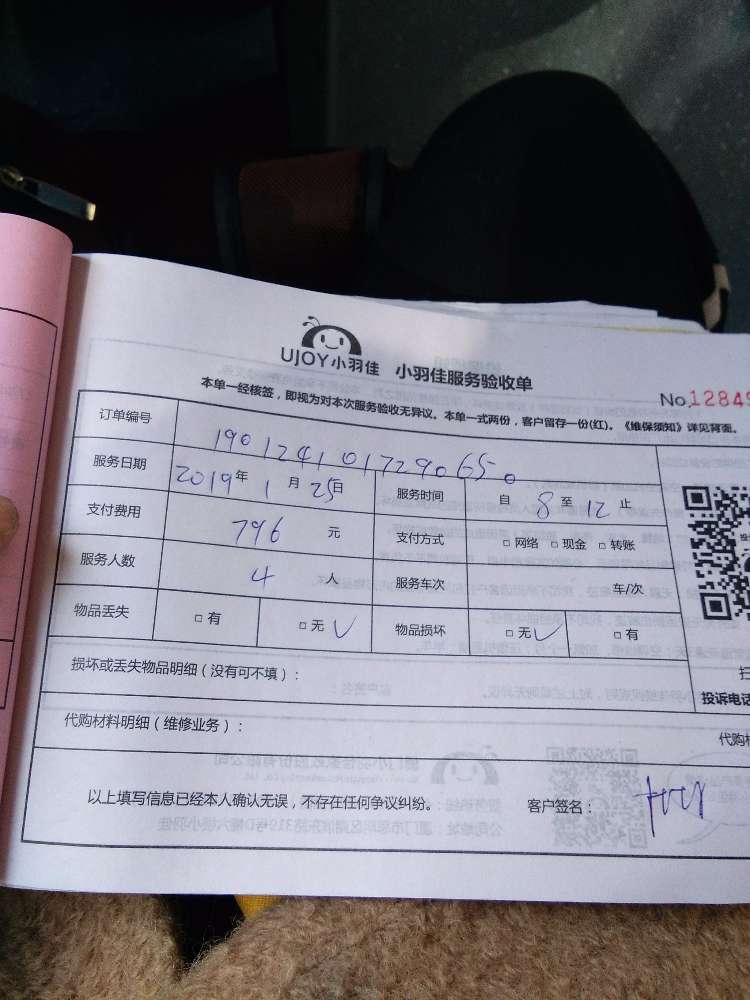 UJOY小羽佳 小羽佳服务验收单
No.12849
本单一经核签，即视为对本次服务验收无异议。本单一式两份，客户留存一份(红)。《维保须知》详见背面。
订单编号 190124101729065。
服务日期 2019年1月25日 服务时间 自 8 至 12 止
支付费用 796 元 支付方式 □ 网络 □ 现金 □ 转账
服务人数 4 人 服务车次 车/次
物品丢失 □ 有 □ 无 √ 物品损坏 □ 无 √ □ 有
损坏或丢失物品明细（没有可不填）：
投诉电话
代购材料明细（维修业务）：
代购材
以上填写信息已经本人确认无误，不存在任何争议纠纷。 客户签名：